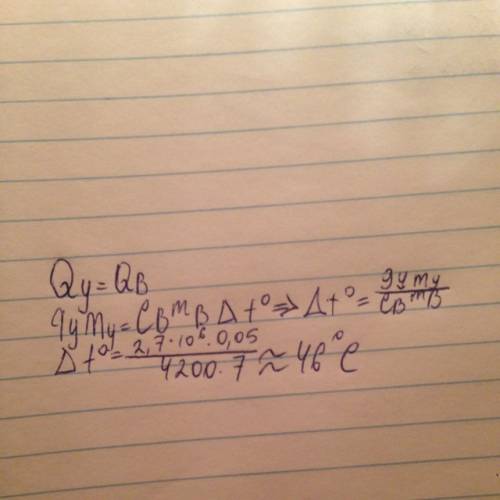 Qу = Qв
qуmу = Cвmв Δt° ⇒ Δt° = qуmу / Cвmв
Δt° = 2,7·10⁶·0,05 / 4200·7 ≈ 46°C